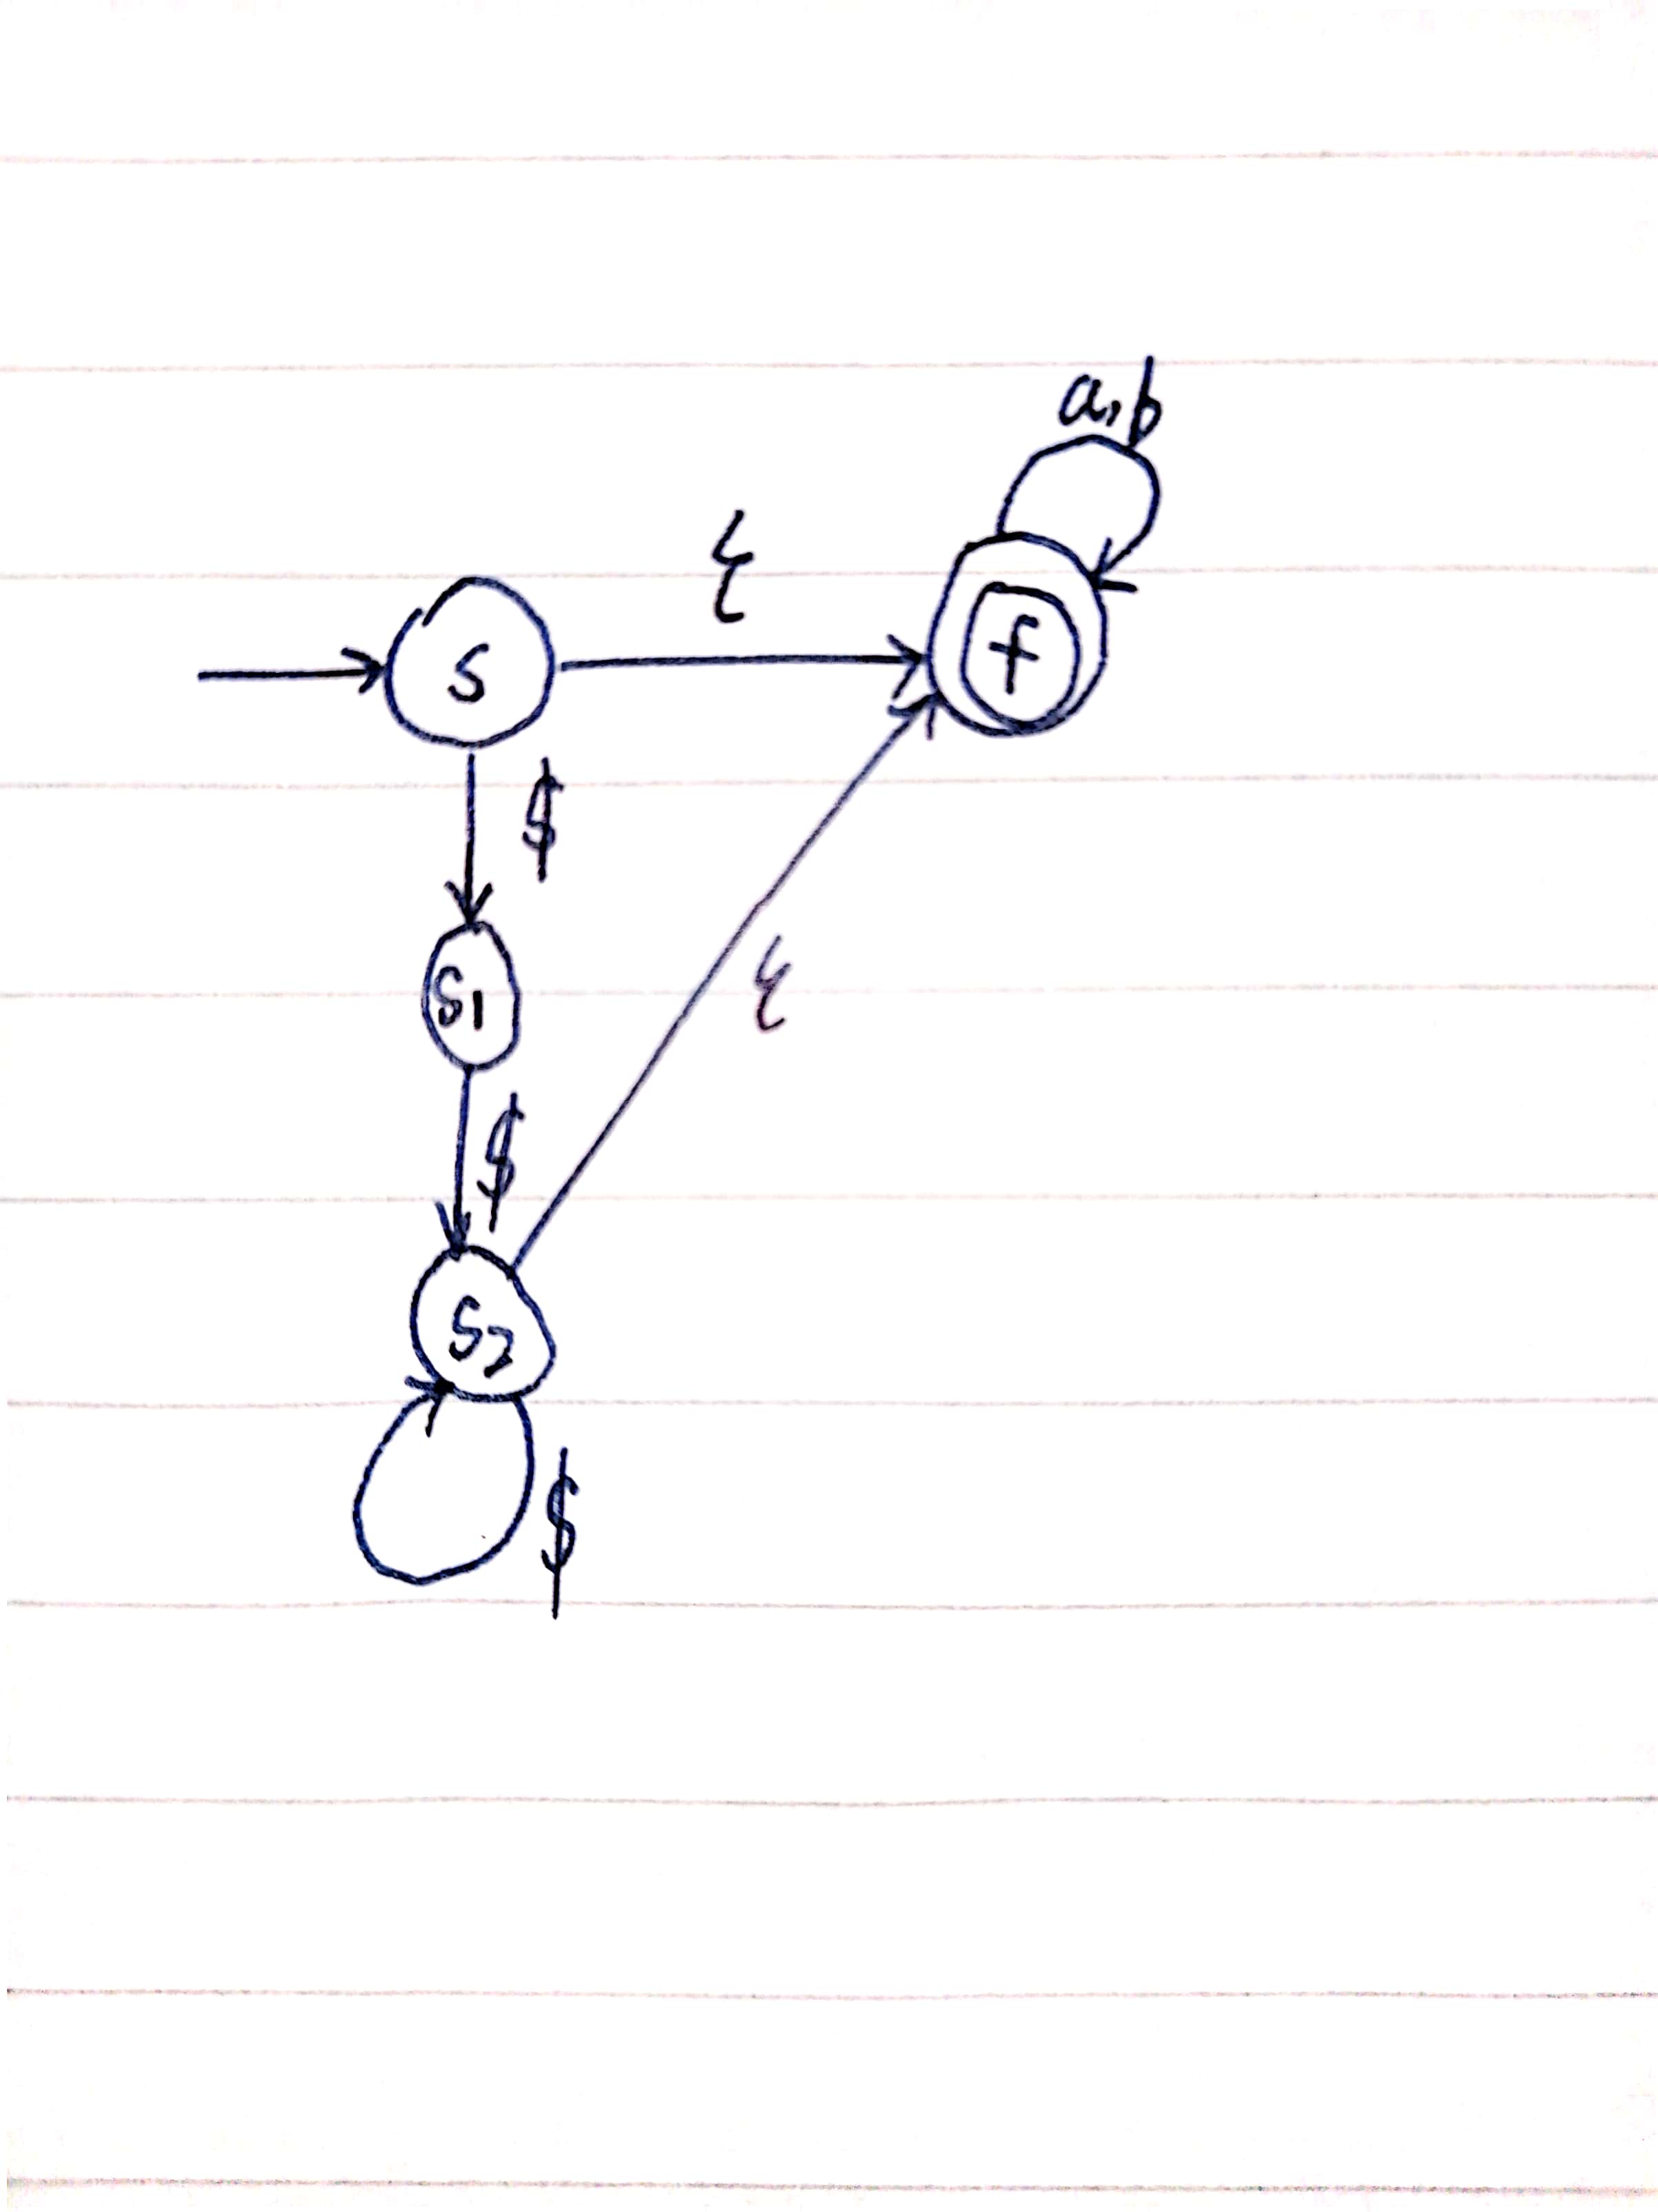 a,b
ξ
s
f
$
s1
ξ
$
s2
$